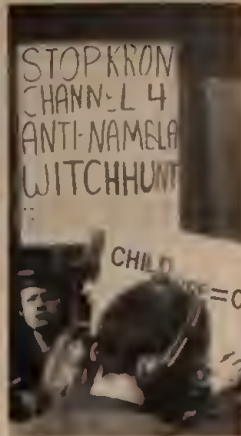 STOP KRON
CHANNEL 4
ANTI-NAMBLA
WITCHHUNT
CHILD
=